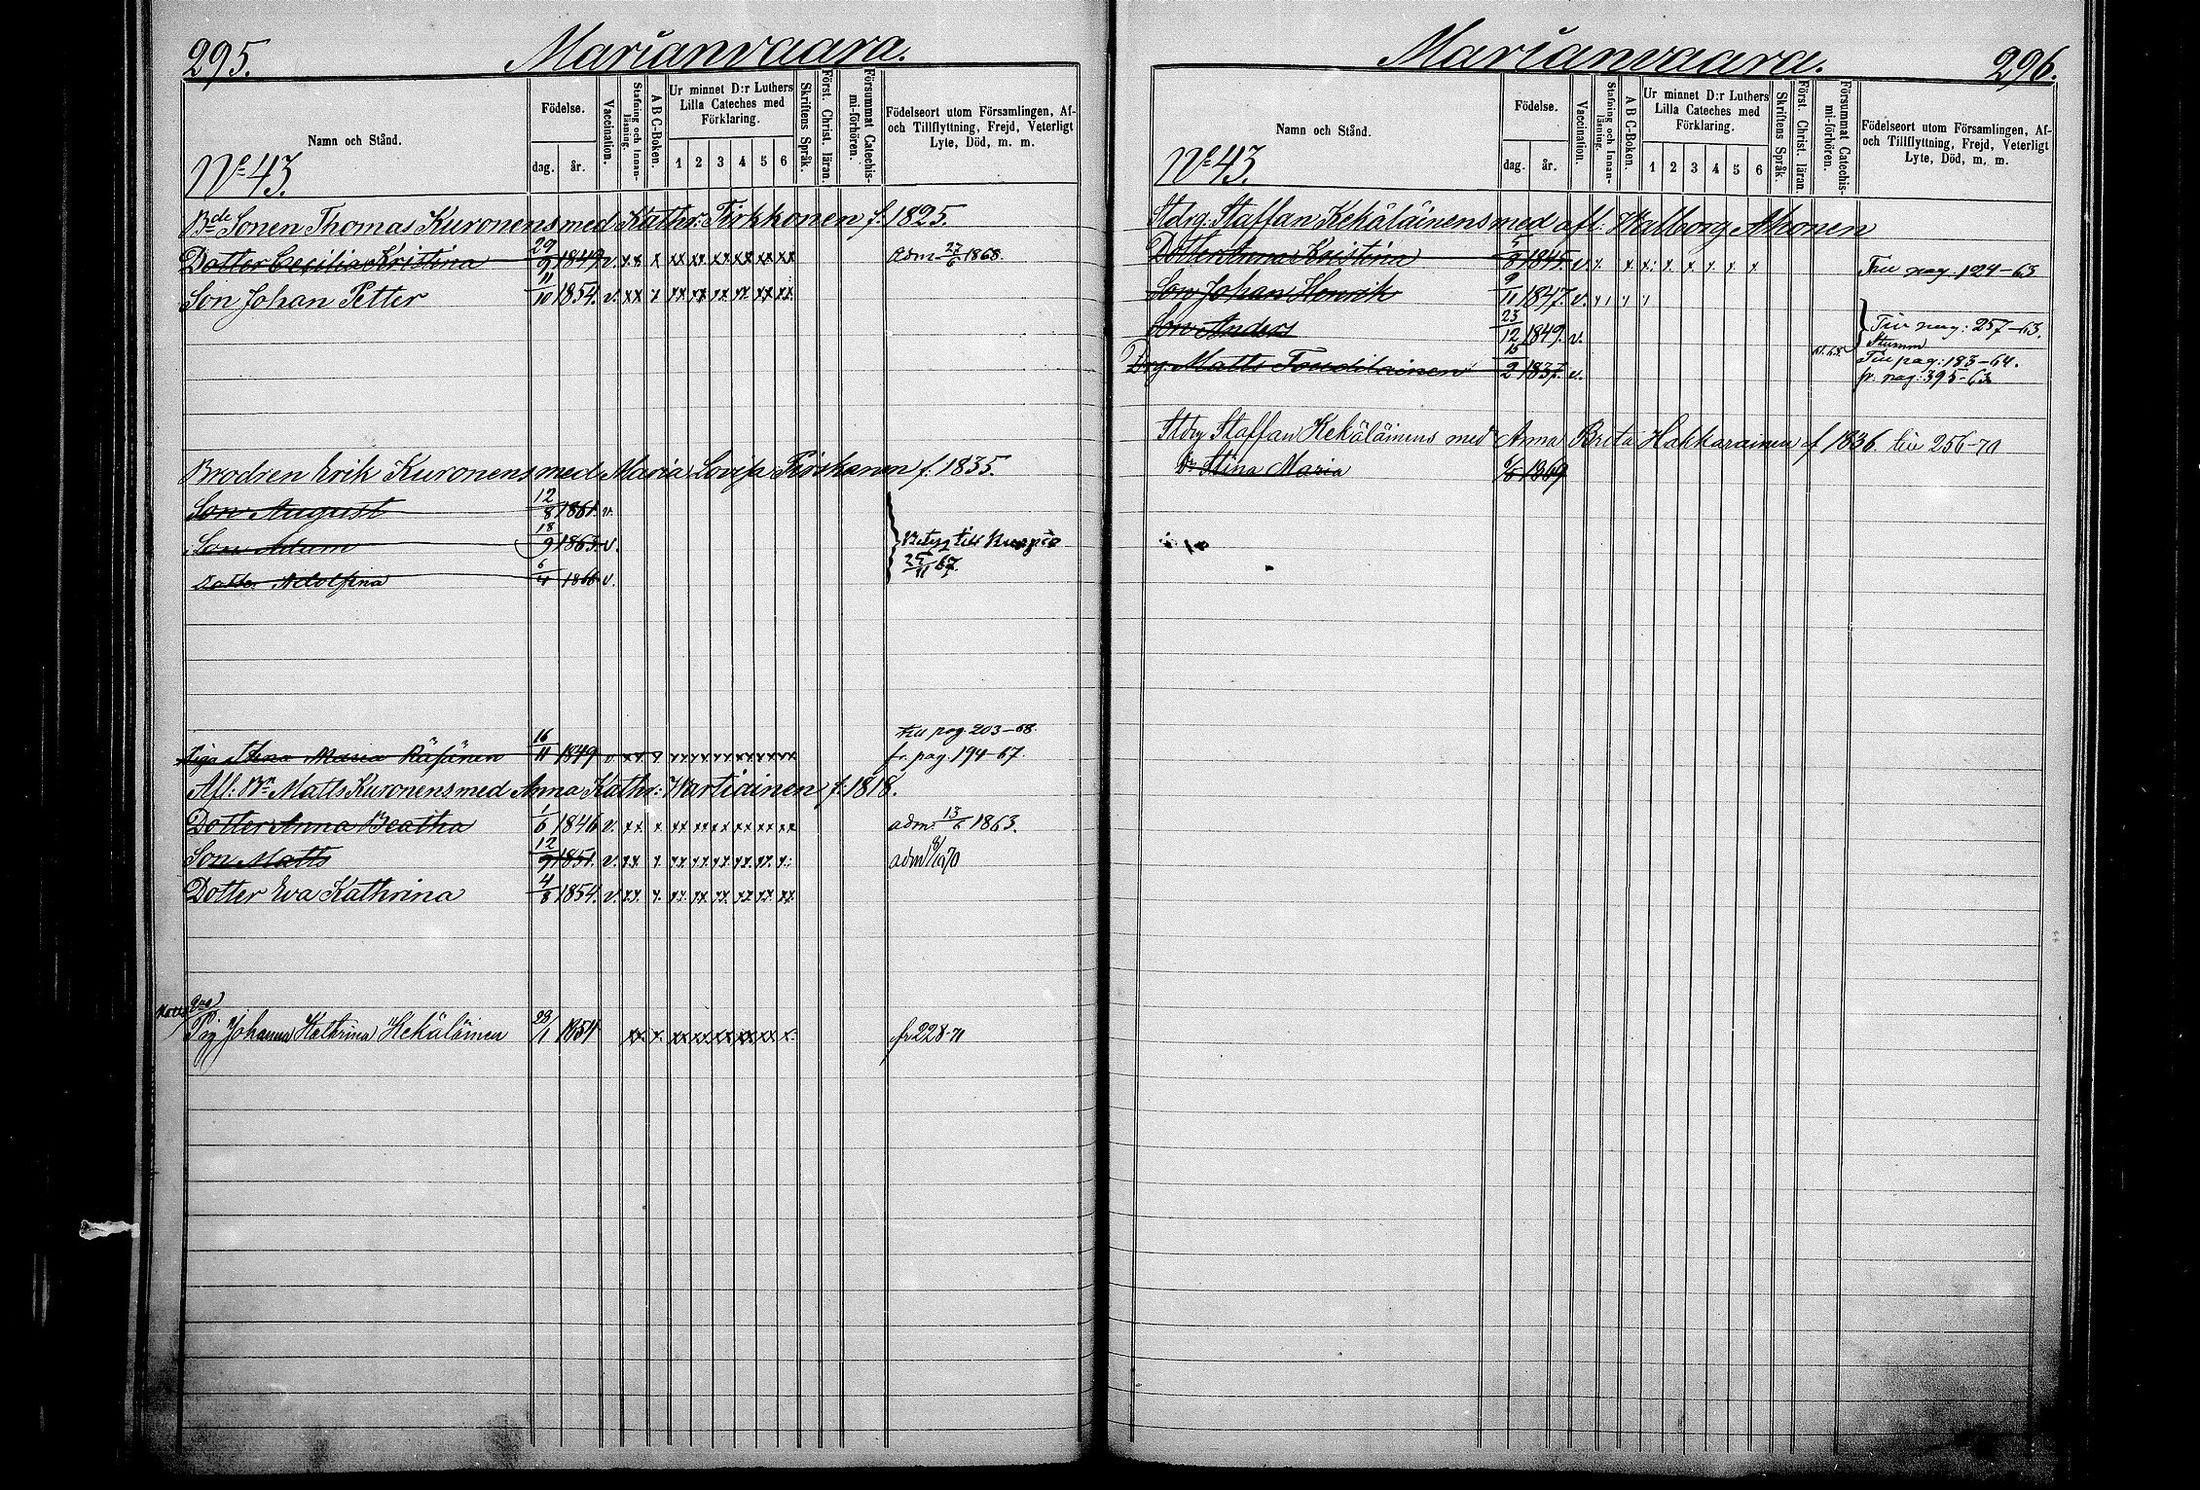 295. Marianvaara.
Namn och Stånd.
Födelse.
dag. år.
Vaccination.
Stafning och Innanläsning.
A B C-Boken.
Ur minnet D:r Luthers Lilla Cateches med Förklaring.
1 2 3 4 5 6
Skriftens Språk.
Först. Christ. läran.
Försummat Catechismi-förhören.
Födelseort utom Församlingen, Af- och Tillflyttning, Frejd, Veterligt Lyte, Död, m. m.
No 43.
Bde Sonen Thomas Kuronens med Kathr: Tirkkonen f. 1825.
Dotter Cecilia Kristina 29/9 1849 v. xx x xx xx xx xx xx xx adm 27/6 1868.
Son Johan Petter 11/10 1854. v. xx x xx xx xx xx xx xx
Brodren Erik Kuronens med Maria Lovisa f. 1835.
Son August 12/8 1861. v.
Son Adam 18/9 1863 v.
Dotter Adolfina 6/4 1866 v.
} Betyg till Kuopio 25/11 67.
till pag. 203-68.
Piga Stina Maria Räsänen 16/11 1849 v. xx x xx xx xx xx xx xx fr. pag. 194-67.
Afl: Bn Matts Kuronens med Anna Kathr: Wartiainen f. 1818.
Dotter Anna Beatha 1/6 1846 v. xx x xx xx xx xx xx xx adm. 13/6 1863.
Son Matts 12/9 1851. v. xx x. xx xx xx xx xx x. adm 70
Dotter Eva Kathrina 4/8 1854. v. xx x. xx xx xx xx xx xx
Pig Johanna Kathrina Kekäläinen 23/1 1854 xx x. xx xx xx xx xx x. fr 228-71
Marianvaara. 296.
Namn och Stånd.
Födelse.
dag. år.
Vaccination.
Stafning och Innanläsning.
A B C-Boken.
Ur minnet D:r Luthers Lilla Cateches med Förklaring.
1 2 3 4 5 6
Skriftens Språk.
Först. Christ. läran.
Försummat Catechismi-förhören.
Födelseort utom Församlingen, Af- och Tillflyttning, Frejd, Veterligt Lyte, Död, m. m.
No 43.
Stdrg: Staffan Kekäläinens med afl: Walborg Ahonen
Dotter Anna Kristina 5/8 1845. v. x. x x. x. x x. x. x Till pag. 124-63
Son Johan Henrik 9/11 1847. v.
Son Anders 23/12 1849. v.
} Till pag: 257-63.
Stumm
Drg. Matts 15/2 1837. v. Till pag: 183-64.
fr. pag: 395-63
Stdrg Staffan Kekäläinens med Anna Brita Hakkarainen f 1836. till 256-70
Dr Stina Maria 1869